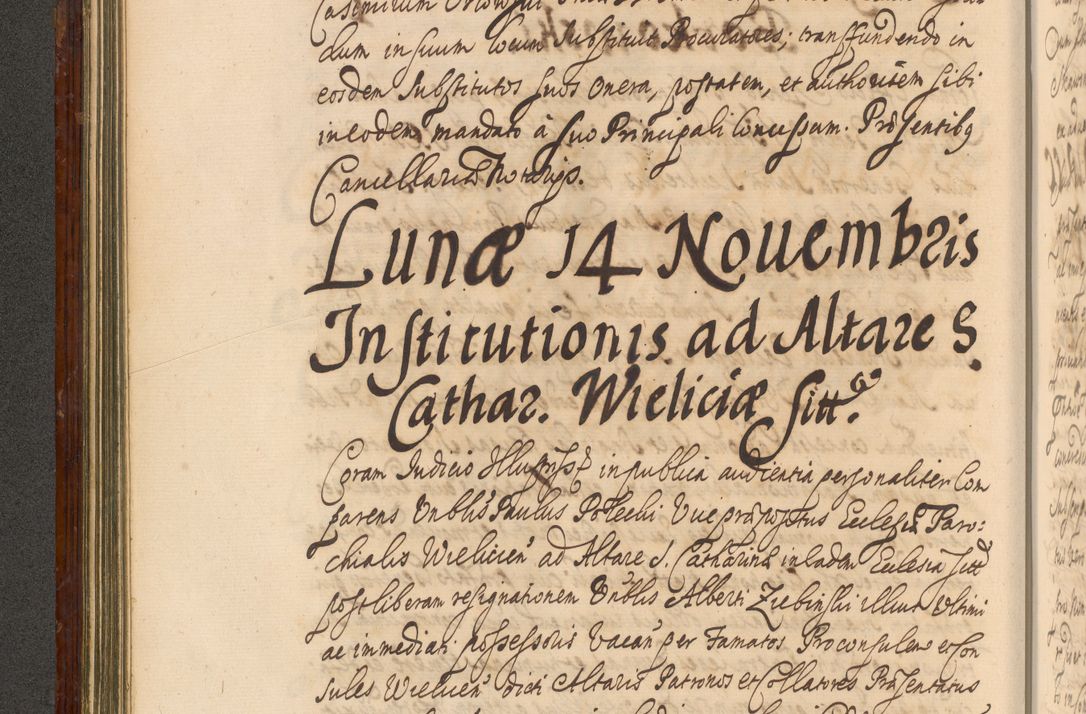 dum in suum locum Substituit Procuratores; transfundendo in
eosdem Substitutos suos onera, postatem, et authoritem sibi
in eodem mandato à suo Principali Concessam. Præsentibq
Cancellariæ Notarijs.
Lunæ 14 Nouembris
Institutionis ad Altare S.
Cathar. Wieliciæ sitt.
Coram Iudicio Illustriss. in publica audientia personaliter Com
parens Vnblis Paulus Potechi Vicepræpositus Ecclesiæ Paro:
chialis Wielicien ad Altare S. Catharinæ in eadem Ecclesia sitt
post liberam resignationem Vnblis Alberti Ziebinski illius Vltimi
ac immediati possessoris Vacan per Famatos Proconsulem et Con
sules Wielicien dicti Altaris Patronos et Collatores Præsentatus